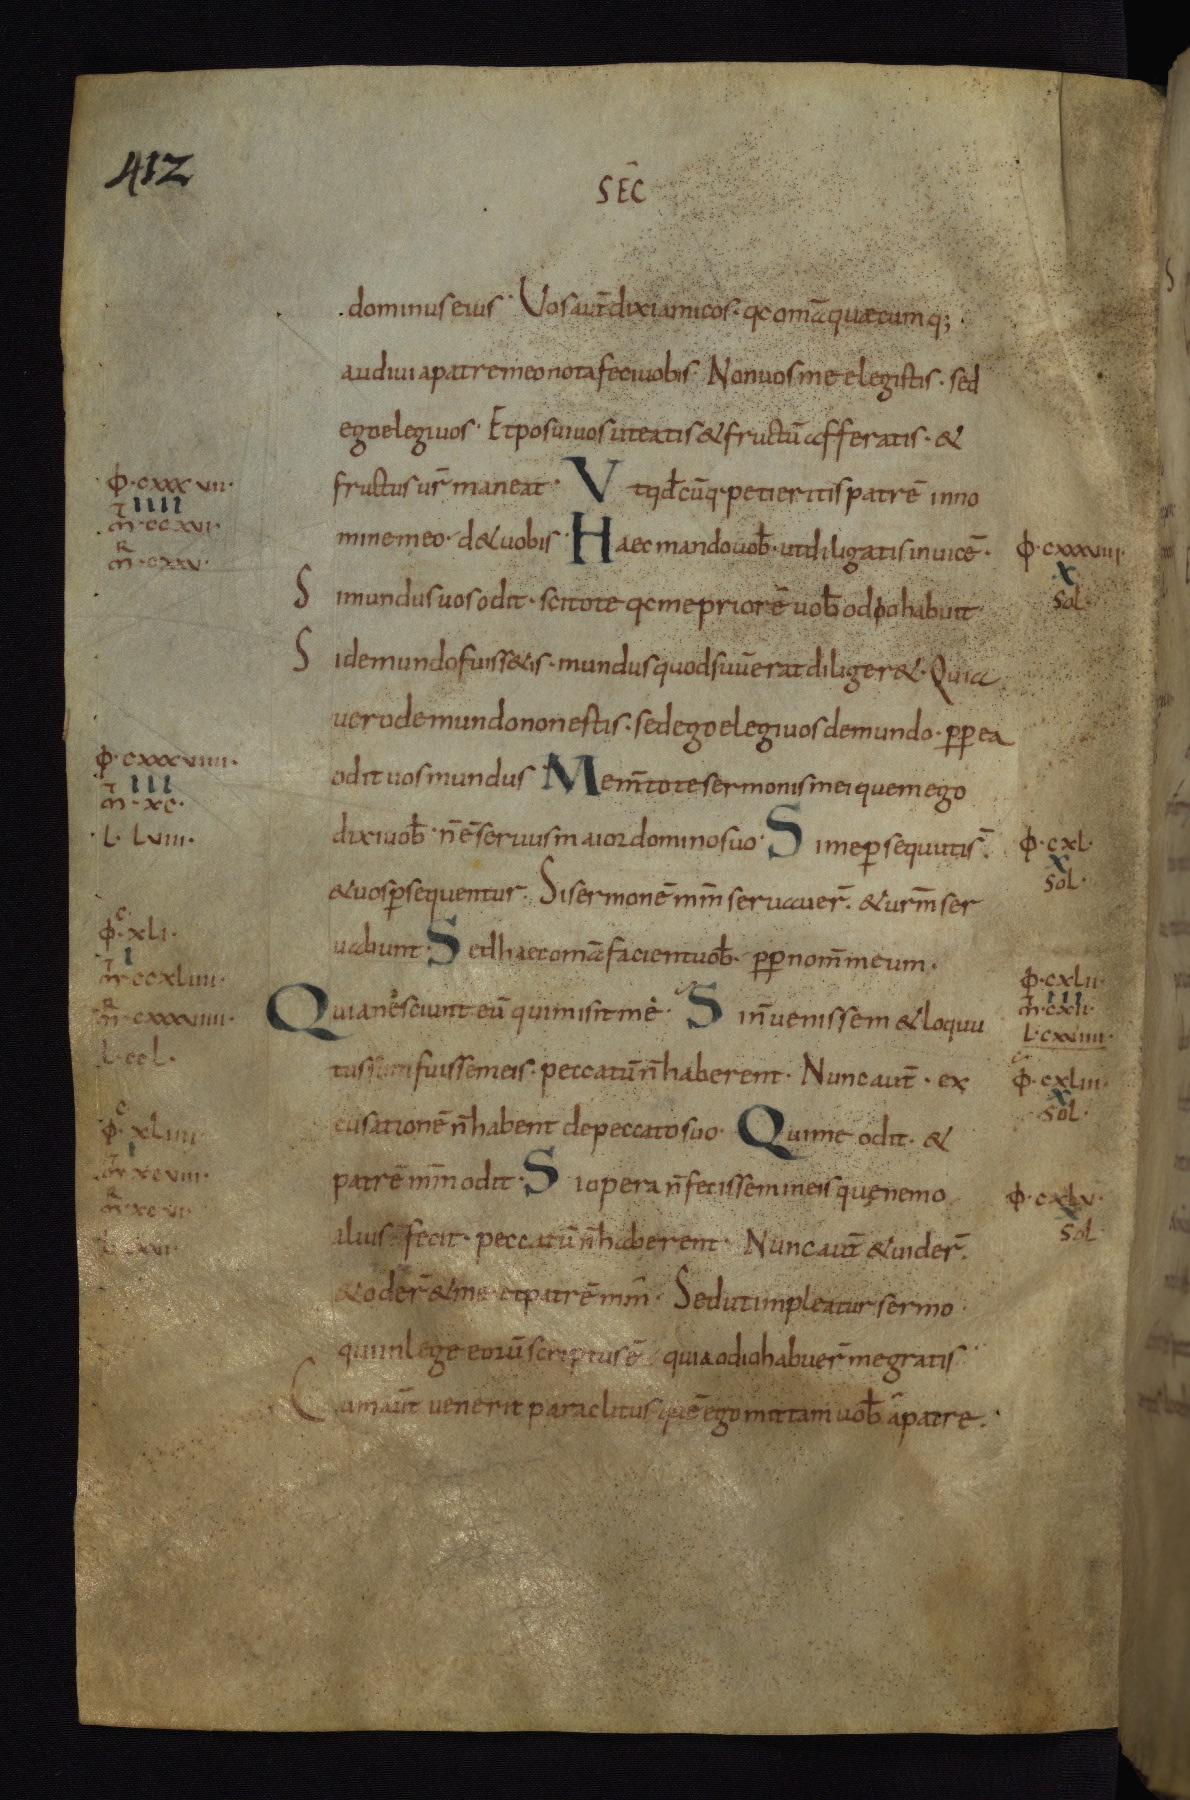 412
SEC̄
dominus eius. Uos aut̄ dixi amicos. qc om̄a quaecumq;
audiui a patre meo nota feci uobis. Non uos me elegistis. sed
ego elegi uos. Et posui uos ut eatis & fructū afferatis. &
fructus ur̄ maneat. Ut qd̄cūq. petieritis patrē in no
mine meo. d& uobis. Haec mando uob̄. ut diligatis inuicē.
Si mundus uos odit. scitote qc me priorē uob̄ odio habuit
Si de mundo fuiss&is. mundus quod suum erat diliger&. Quia
uero de mundo non estis. sed ego elegi uos de mundo. pp ea
odit uos mundus. Mem̄tote sermonis mei quem ego
dixi uob̄. n̄ ē seruus maior domino suo. Si me ꝑsequuti s̄.
& uos ꝑsequentur. Si sermonē mm̄ seruauer̄. & urm̄ ser
uabunt. Sed haec om̄a facient uob̄. pp nom̄ meum.
Quia nesciunt eū qui misit me. Si n̄ uenissem & loquu
tus fuissem eis. peccatū n̄ haberent. Nunc aut̄. ex
cusationē n̄ habent de peccato suo. Qui me odit. &
patrē mm̄ odit. Si opera n̄ fecissem in eis quę nemo
alius fecit. peccatū n̄ haberent. Nunc aut̄ & uider̄.
& oder̄ & me et patrē mm̄. Sed ut impleatur sermo
qui in lege eorū scriptus ē quia odio habuer̄ me gratis
Cum aut̄ uenerit paraclitus quē ego mittam uob̄ a patre.
ϕ. cxxxvii.
IIII
m̄. ccxvi.
m̄. cxxv.
ϕ. cxxxviiii.
III
m̄. xc.
L. Lviii.
ϕ. c xli.
I
m̄. ccxliiii.
m̄. cxxxviiii.
L. ccl.
ϕ. c xliiii.
I
m̄. xcviii.
m̄. xcvi.
ϕ. cxxxviii.
X
sol.
ϕ. cxl.
X
sol.
ϕ. cxlii.
III
m̄. cxli.
L. cxviiii.
ϕ. cxliii.
X
sol.
ϕ. cxlv.
X
sol